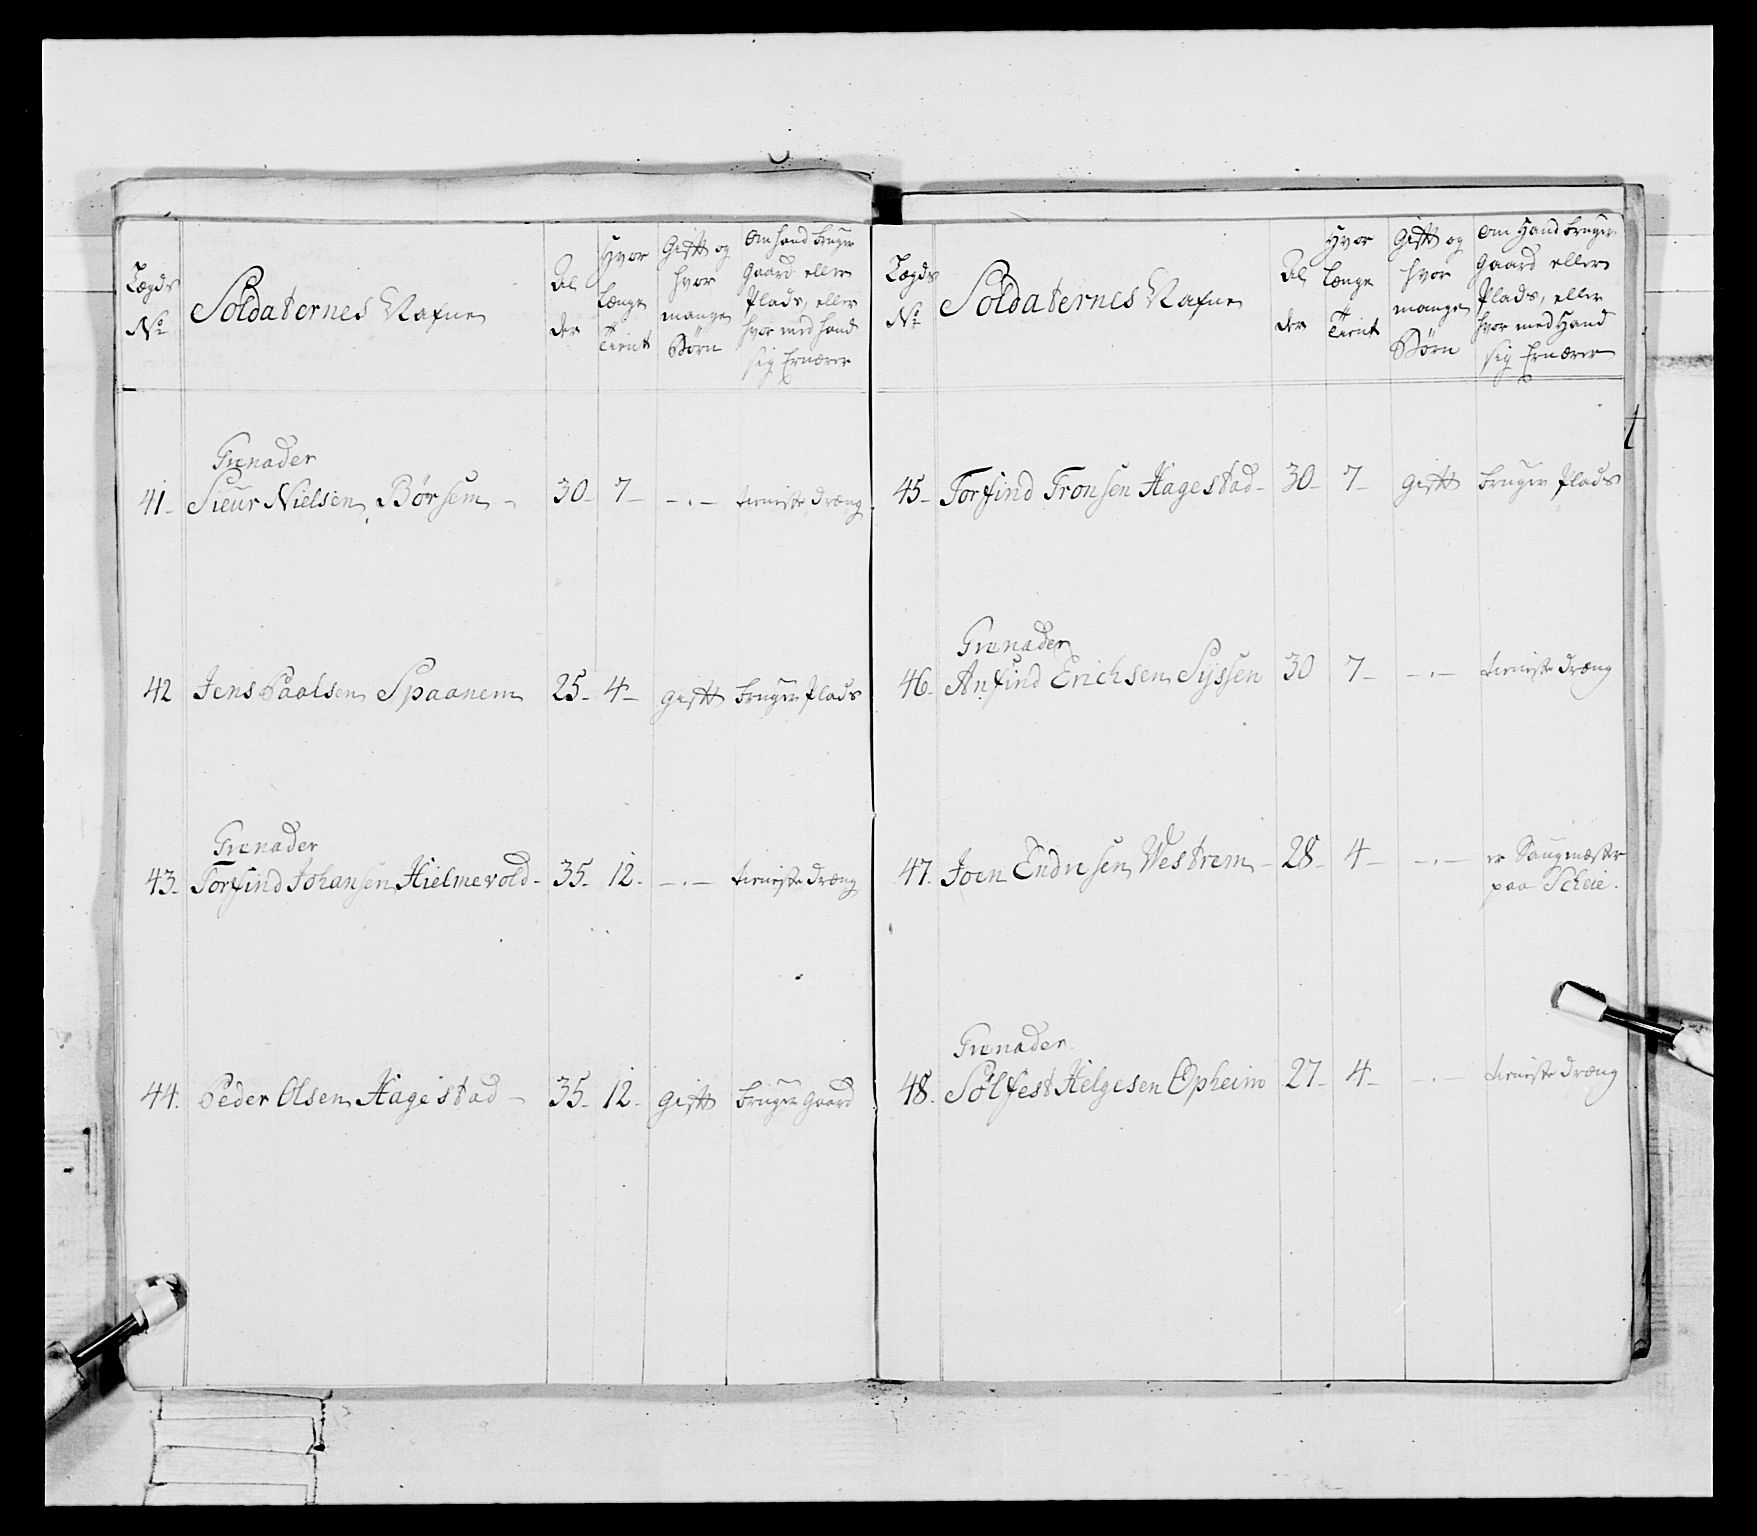 Lægds
No
Soldaternes Nafne
Al
der
Hvor
længe
Tient
Gift og
hvor
mange
Børn
Om hand bruger
Gaard eller
Plads, eller
hvor med hand
sig Ernærer
Grenader
41- Sieur Nielsen Børsem - 30- 7- -.- tieniste dræng
42 Jens Paalsen Spaanem 25- 4- gift bruger Plads
Grenader
43. Torfind Johansen Hielmevold - 35- 12- -.- tieniste dræng
44. Peder Olsen Hagestad - 35- 12- gift bruger gaard
Lægds
No
Soldaternes Nafne
Al
der
Hvor
længe
Tient
Gift og
hvor
mange
Børn
Om Hand bruger
Gaard eller
Plads, eller
hvor med Hand
sig Ernærer
45- Torfind Tronsen Hagestad - 30- 7- gift bruger Plads
Grenader
46- Anfind Erichsen Syssen 30 7- -.- tieniste dræng
47. Joen Endresen Westrem - 28- 4- -.- er Saugmæster
paa Scheie.
Grenader
48. Sølfest Helgesen Opheim 27- 4- -.- tieniste dræng